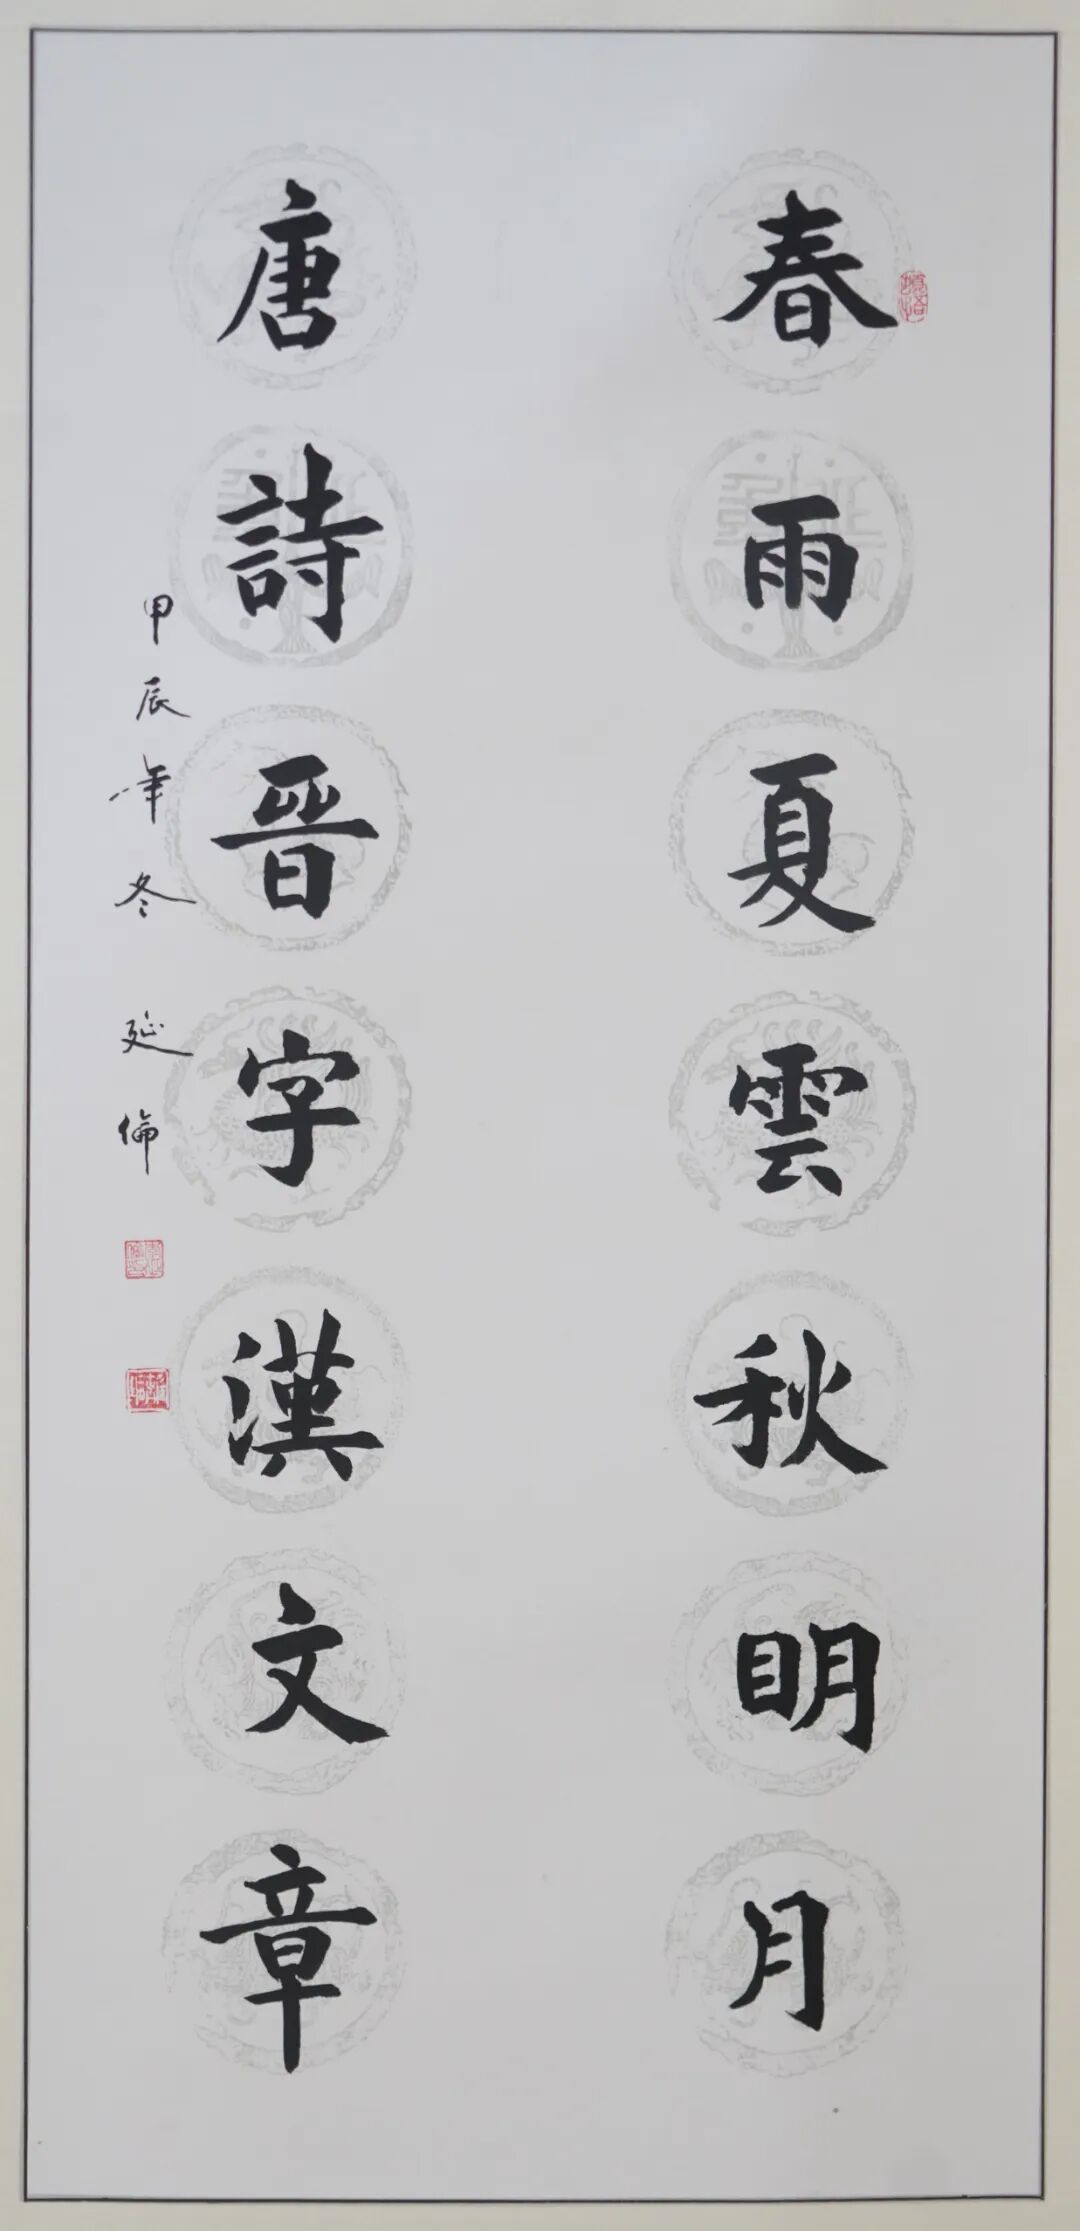 春雨夏雲秋明月
唐詩晋字漢文章
甲辰年冬 延倫